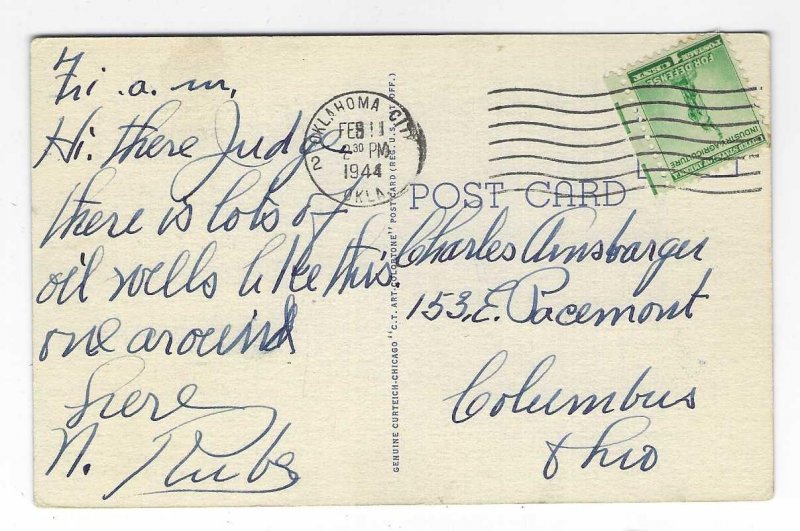 Fri. a.m.
Hi. There Judge
there is lots of
oil wells like this
one around
here
N. Rube
OKLAHOMA CITY
2
FEB 11
2 30 PM
1944
OKLA.
POSTAGE
FOR DEFENSE
INDUSTRY-AGRICULTURE
UNITED STATES OF AMERICA
GENUINE CURTEICH-CHICAGO "C.T. ART-COLORTONE" POST CARD (REG. U.S. PAT. OFF.)
POST CARD
Charles Amsbarger
153, E. Pacemont
Columbus
Ohio